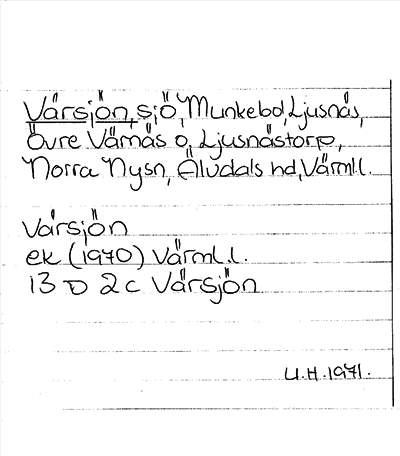 Vårsjön, sjö, Munkebol, Ljusnäs,
Övre Värnäs o. Ljusnästorp,
Norra Nysn, Älvdals hd, Värml.l.
Vårsjön
ek (1970) Värml.l.
13 D 2c Vårsjön
U.H. 1971.